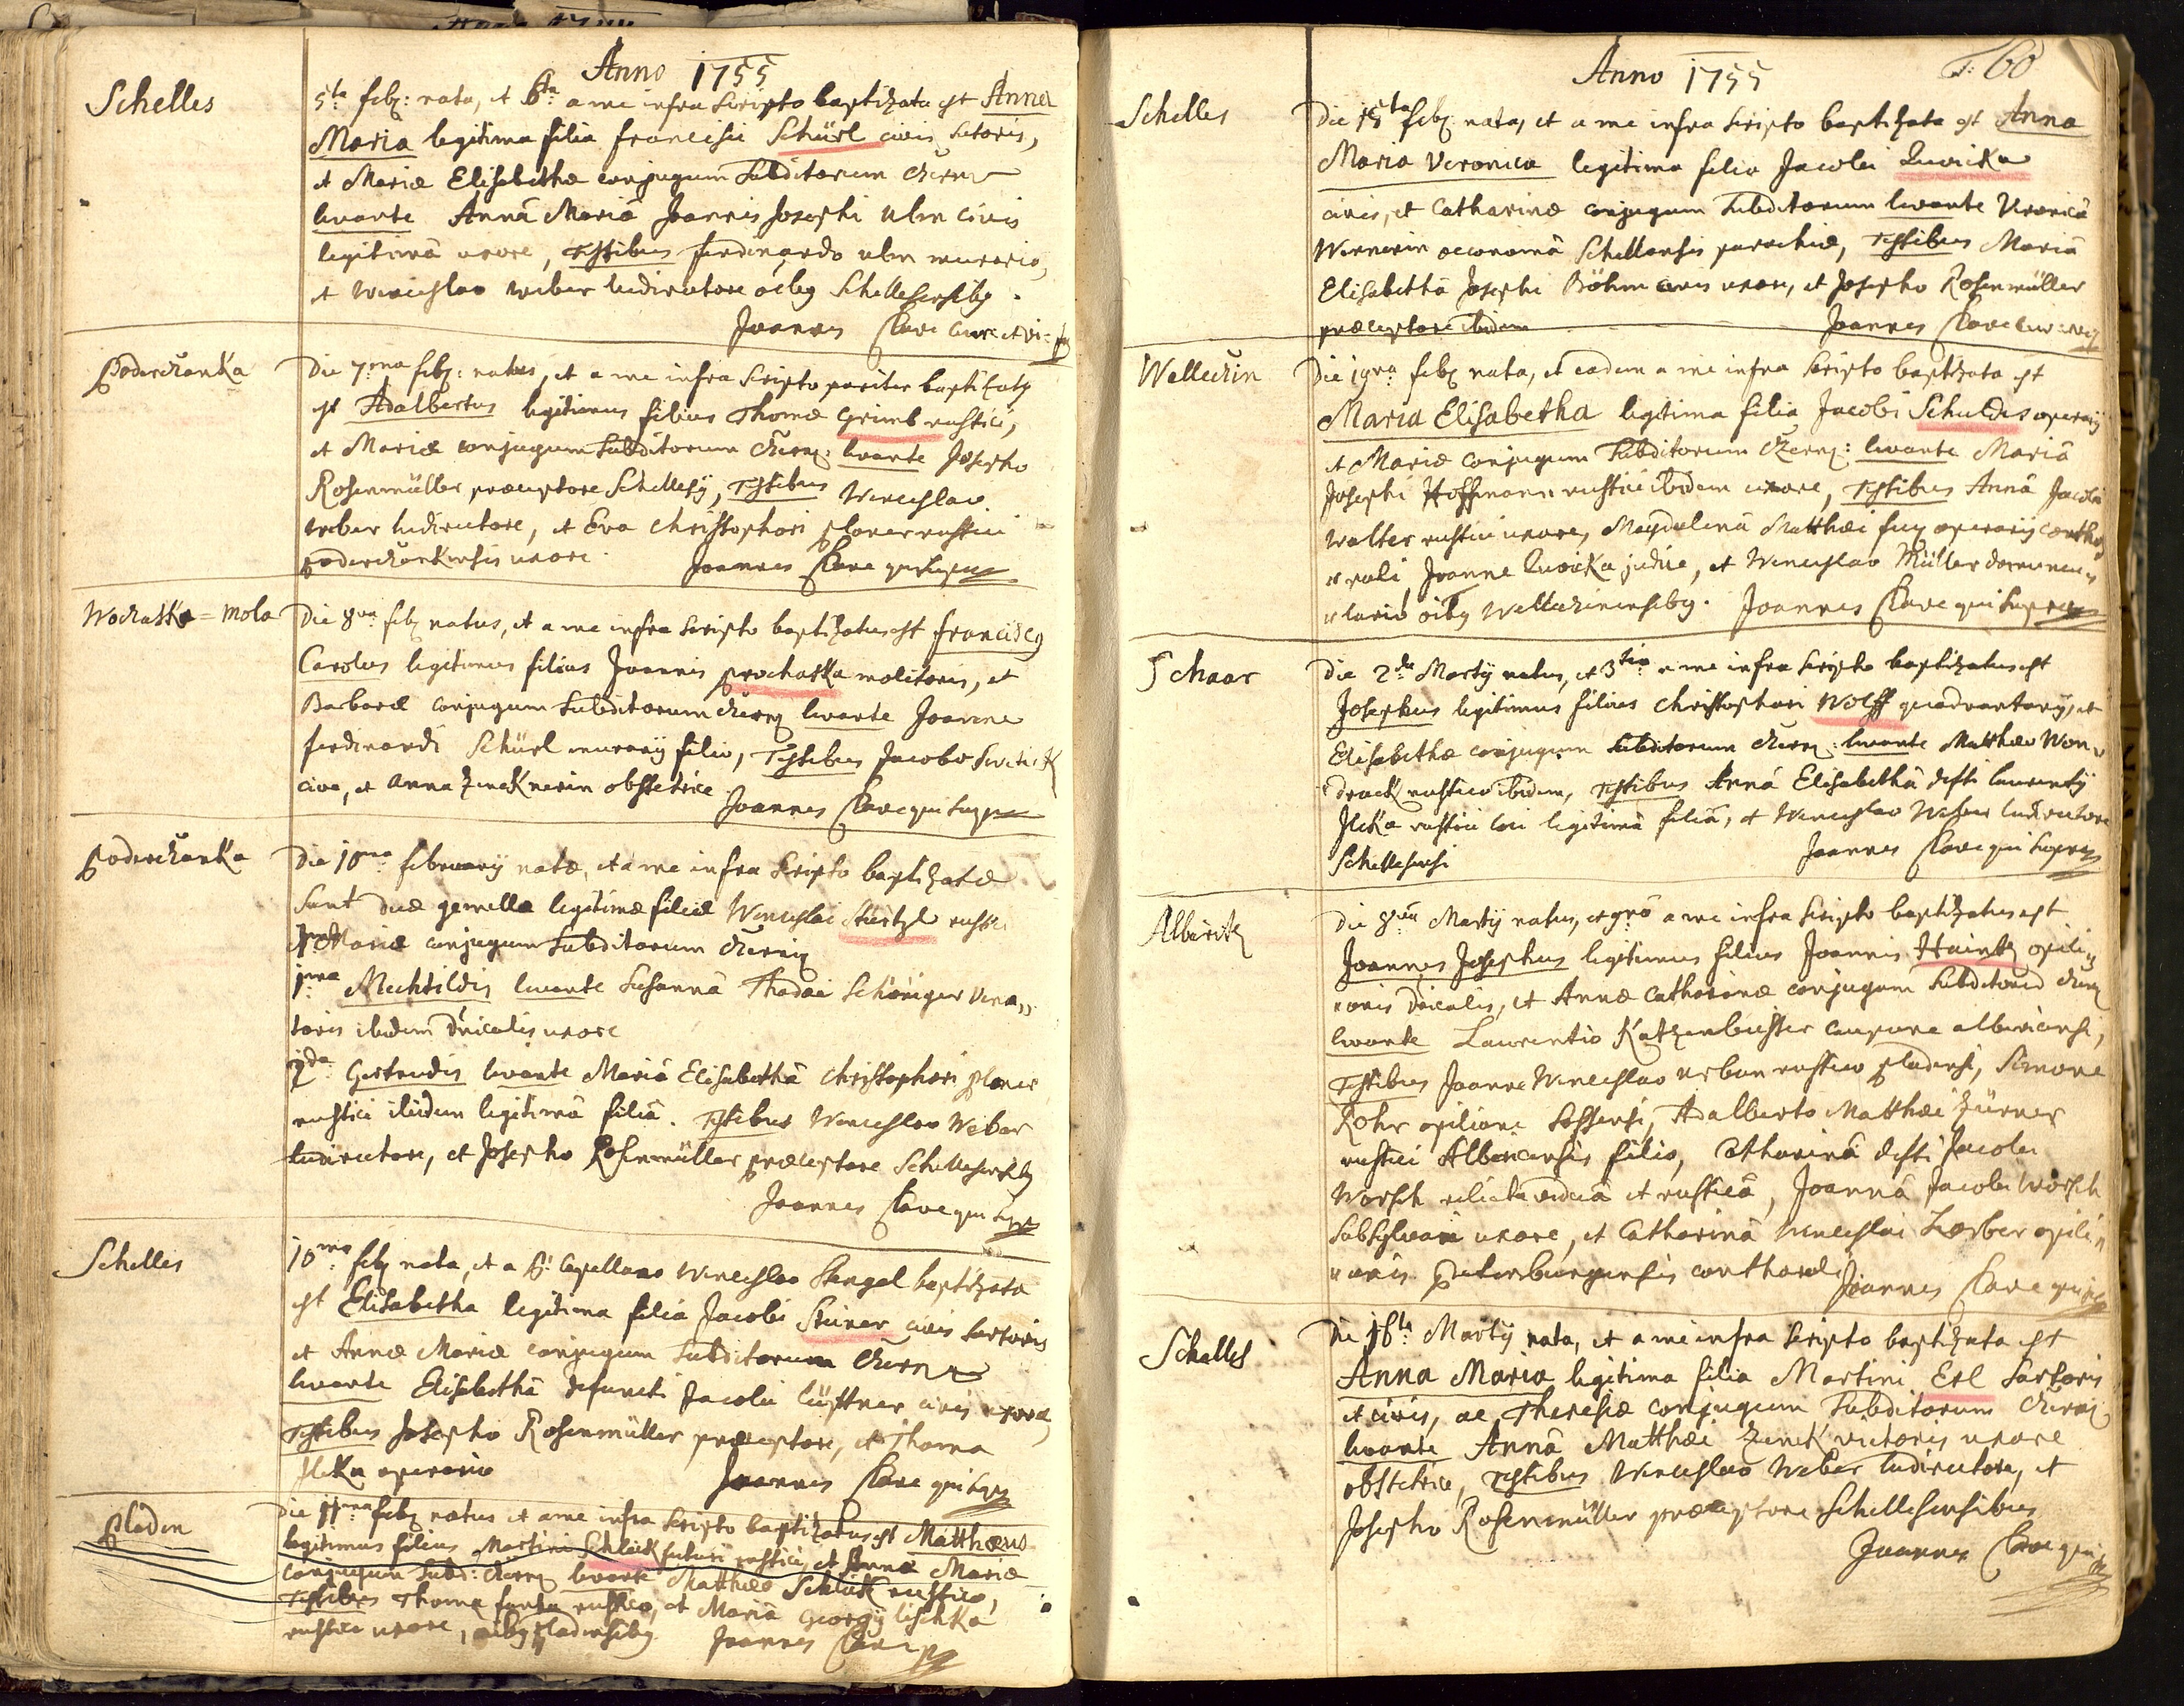 Anno 1755
Schelles
5ta feb: nata, et 6ta a me infra scripto baptizata est Anna
Maria legitima filia Francisci Schürl civis sutoris,
et Mariæ Elisabethæ conjugum subditorum Czern
levante Annâ Mariâ Joannis Josephi Ulm civis
legitimâ uxore, testibus Ferdinando Ulm murario,
et Wenceslao Weber ludirectore oibg Schellesensibg.
Joannes Clave
Poderczanka
Die 7ma feb: natus, et a me infra scripto pariter baptizatg
est Adalbertus legitimus filius Thomæ Grimb rustici,
et Mariæ conjugum subditorum Czern: levante Josepho
Rosenmüller præceptore Schellesÿ, testibus Wenceslao
Weber ludirectore, et Eva Christophori Planer rustici
Poderczankensis uxore. Joannes Clave qui supra
Wochatka = mola
Die 8va feb natus, et a me infra scripto baptizatus est Franciscg
Carolus legitimus filius Joannis Prochaska molitoris, et
Barbaræ conjugum subditorum Czern levante Joanne
Ferdinandi Schürl murarÿ filio, testibus Jacobo Switick
cive, et Anna Zinecknerin obstetrice
Joannes Clave qui supra
Poderczanka
Die 10ma februarÿ natæ, et a me infra scripto baptizatæ
sunt duæ gemellæ legitimæ filiæ Wenceslai Hertzl rustici
et Mariæ conjugum subditorum Czern
1ma Mechtildis levante Susannâ Thadæi Schöniger vena„
toris ibidem dnicalis uxore
2da Gertrudis levante Mariâ Elisabethâ Christophori Planer
rustici ibidem legitimâ filiâ. testibus Wenceslao Weber
ludirectore, et Josepho Rosenmüller præceptore Schellesensibg
Joannes Clave qui supra
Schelles
10ma feb nata, et a P. Capellano Wenceslao Stengel baptizata
est Elisabetha legitima filia Jacobi Steiner civis sartoris
et Annæ Mariæ conjugum subditorum Czern
levante Elisabethâ defuncti Jacobi Lüfftner civis uxore,
testibus Josepho Rosenmüller præceptore, et Thoma
Jleka operario Joannes Clave qui supra
Pladen
Die 11ma feb natus et a me infra scripto baptizatus est Matthæus
legitimus filius Martini Schluck futuri rustici, et Annæ Mariæ
conjugum subd: Czern levante Matthæo Schluck rustico,
testibus Thoma rustico, et Mariâ Georgÿ Lischka
rustici uxore, oibg Pladensibg Joannes Clave
Anno 1755
F: 60
Schelles
Die 15ta feb nata, et a me infra scripto baptizata est Anna
Maria Veronica legitima filia Jacobi Zwicka
civis, et Catharinæ conjugum subditorum levante Veronicâ
Wernerin œconomâ Schellensis parochiæ, testibus Mariâ
Elisabethâ Josephi Böhm civis uxore, et Josepho Rosenmüller
præceptore ibidem Joannes Clave
Welleczin
Die 19na feb nata, et eadem a me infra scripto baptizata est
Maria Elisabetha legitima filia Jacobi Schuldes operarÿ
et Mariæ conjugum subditorum Czern: levante Mariâ
Josephi Hoffmann rustici ibidem uxore, testibus Annâ Jacobi
Walter rustici uxore, Magdalenâ Matthæi operarÿ conthο„
„rali Joanne Zwicka judice, et Wenceslao Müller
„lario oibg Welleczinensibg. Joannes Clave qui supra
Schaar
Die 2da Martÿ natus, et 3tia a me infra scripto baptizatus est
Josephus legitimus filius Christophori Wolff quadrantarÿ, et
Elisabethæ conjugum subditorum Czern: levante Matthæo Won„
„drack rustico ibidem, testibus Annâ Elisabethâ defti Laurentÿ
Jleka rustici loci legitimâ filiâ, et Wenceslao Weber ludirectore
Schellesensi Joannes Clave qui supra
Alberitz
Die 8va Martÿ natus, et 9na a me infra scripto baptizatus est
Joannes Josephus legitimus filius Joannis Haintz opili„
„onis dnicalis, et Annæ Catharinæ conjugum subditorum Czern
levante Laurentio Katzenbeisser caupone Albericensi,
testibus Joanne Wenceslao Urban rustico Pladensi, Simone
Rohr opilione Sossensi, Adalberto Matthæi Zürner
rustici Albericensis filio, Catharinâ defti Jacobi
Worsch relicta viduâ et rusticâ, Joannâ Jacobi Worsch
subsylvani uxore, et Catharinâ Wenceslai Færber opili„
„onis Petersburgensis conthorali Joannes Clave qui supra
Schelles
Die 16ta Martÿ nata, et a me infra scripto baptizata est
Anna Maria legitima filia Martini Erl sartoris
et civis, ac Theresiæ conjugum subditorum Czern
levante Annâ Matthæi Zinck vietoris uxore
obstetrice, testibus Wenceslao Weber ludirectore, et
Josepho Rosenmüller præceptore Schellesensibus
Joannes Clave qui supra